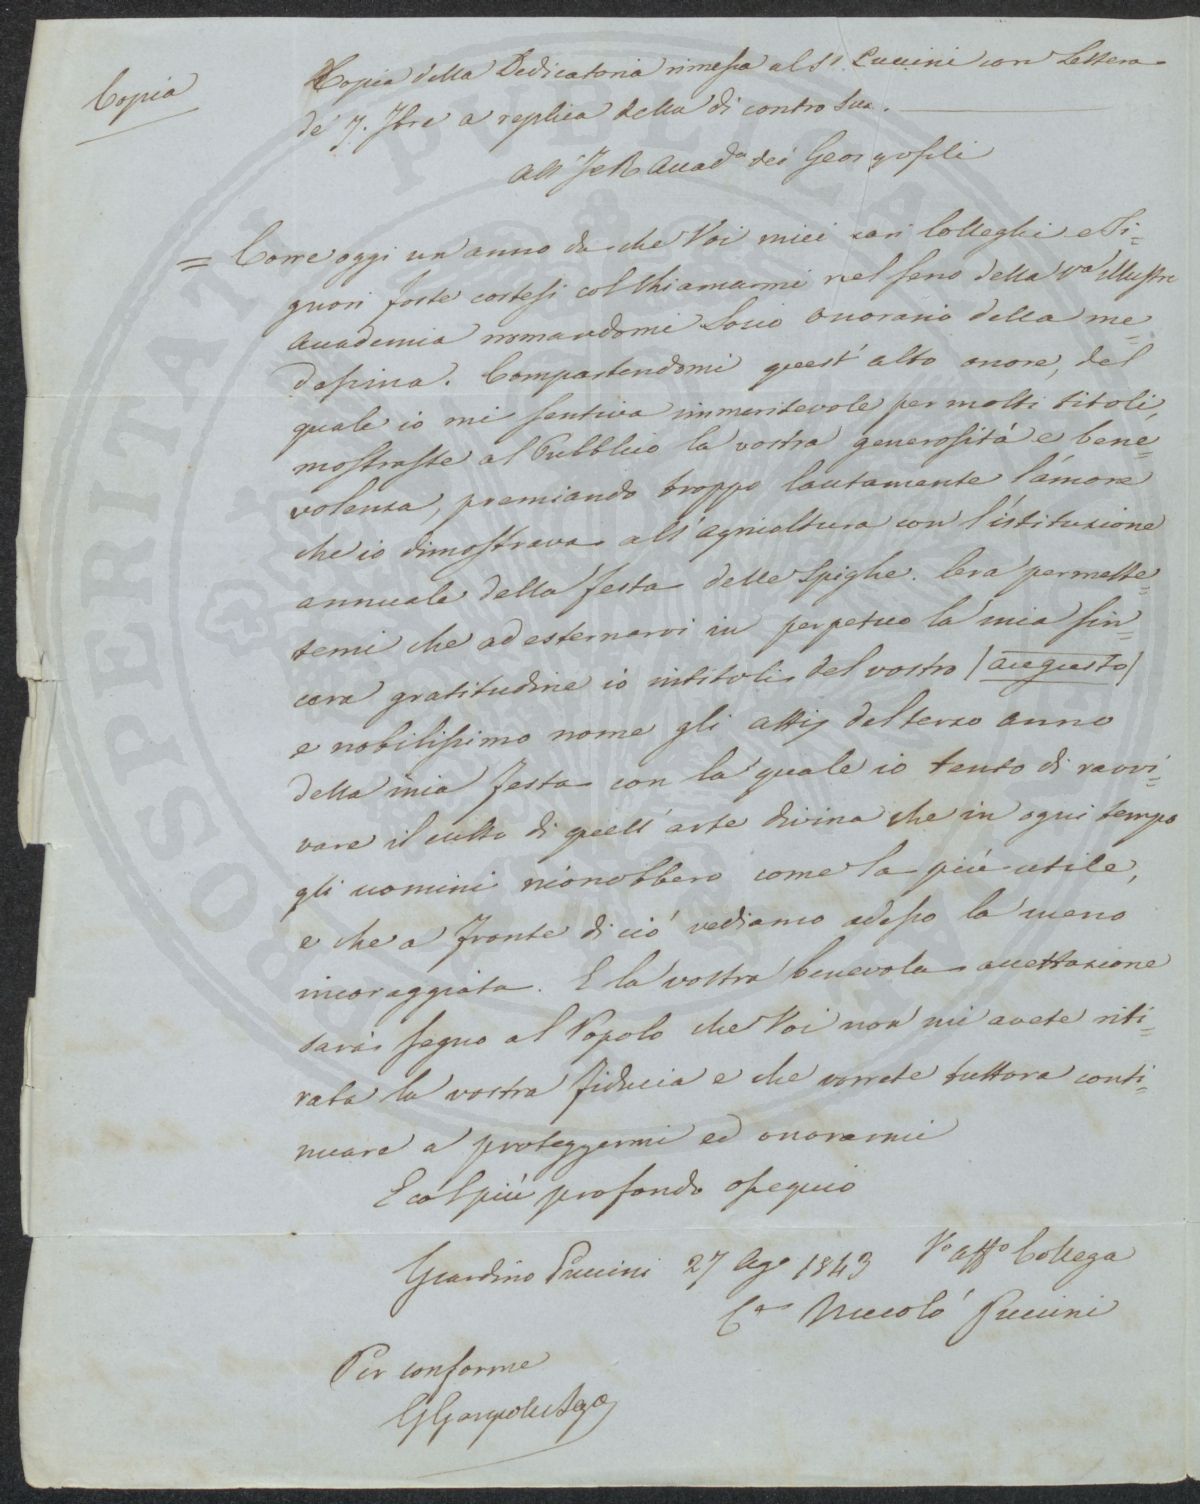 Copia
Copia della Dedicatoria rimessa al Sr. Puccini con Lettera
de' 7. 7bre a replica della di contro sua.
All' I e R Accad.a dei Georgofili
= Corre oggi un'anno da che Voi miei cari Colleghi e Si=
gnori foste cortesi col chiamarmi nel seno della Va illustre
Accademia nomandomi Socio onorario della me=
desima. Compartendomi quest'alto onore, del
quale io mi sentiva immeritevole per molti titoli,
mostraste al Pubblico la vostra generosità e bene=
volenza, premiando troppo lautamente l'amore
che io dimostrava all'agricoltura con l'istituzione
annuale della festa delle Spighe. Ora permette=
temi che ad esternarvi in perpetuo la mia sin=
cera gratitudine io intitoli del vostro (augusto)
e nobilissimo nome gli atti del terzo anno
della mia festa con la quale io tento di ravvi=
vare il culto di quell'arte divina che in ogni tempo
gli uomini riconobbero come la più utile,
e che a fronte di ciò vediamo adesso la meno
incoraggiata. E la vostra benevola accettazione
sarà segno al Popolo che Voi non mi avete riti=
rata la vostra fiducia e che vorrete tuttora conti=
nuare a proteggermi ed onorarmi
E col più profondo ossequio
Giardino Puccini 27 Ago 1843 Vo affo Collega
Niccolò Puccini
Per conforme